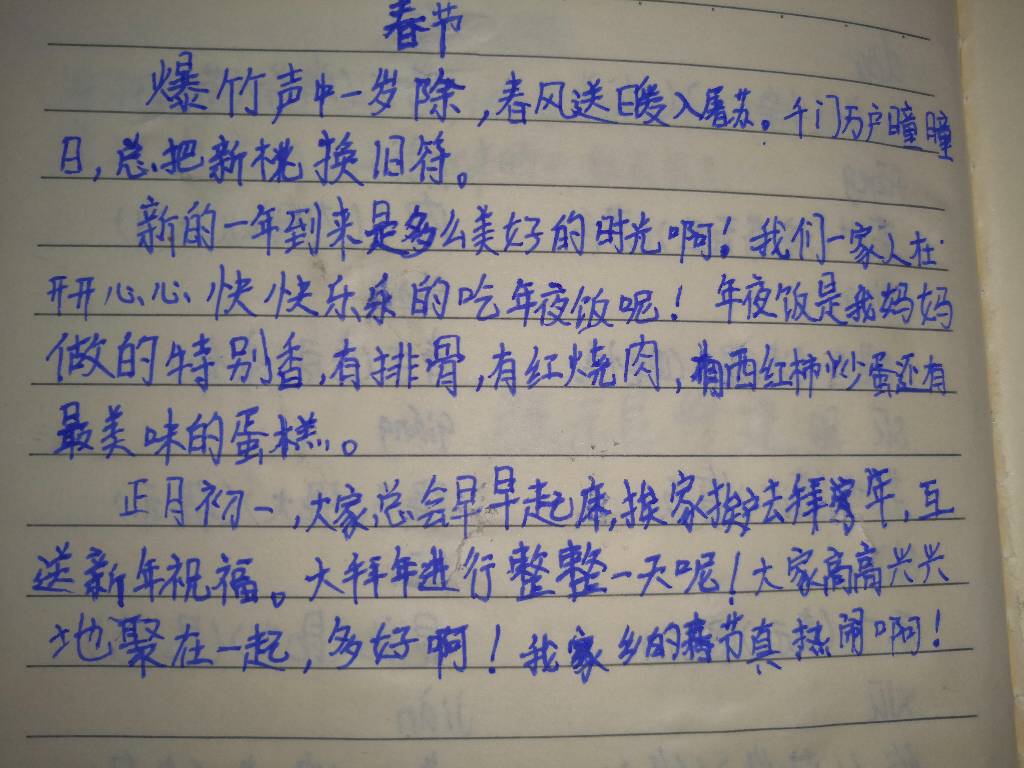 春节
爆竹声中一岁除,春风送日暖入屠苏。千门万户瞳瞳
日,总把新桃换旧符。
新的一年到来是多么美好的时光啊!我们一家人在
开开心心、快快乐乐的吃年夜饭呢!年夜饭是我妈妈
做的特别香,有排骨,有红烧肉,有西红柿炒蛋还有
最美味的蛋糕。
正月初一,大家总会早早起床,挨家挨户去拜年,互
送新年祝福。大拜年进行整整一天呢!大家高高兴兴
地聚在一起,多好啊!我家乡的春节真热闹啊!